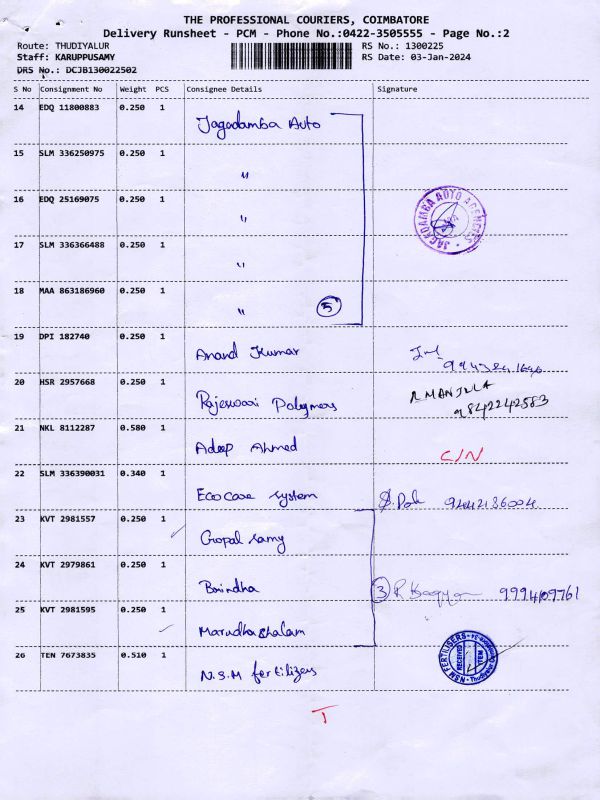 THE PROFESSIONAL COURIERS, COIMBATORE
Delivery Runsheet - PCM - Phone No.:0422-3505555 - Page No.:2
Route: THUDIYALUR RS No.: 1300225
Staff: KARUPPUSAMY RS Date: 03-Jan-2024
DRS No.: DCJB130022502
S No Consignment No Weight PCS Consignee Details Signature
14 EDQ 11800883 0.250 1 Jagadamba Auto
15 SLM 336250975 0.250 1 "
16 EDQ 25169075 0.250 1 "
17 SLM 336366488 0.250 1 "
18 MAA 863186960 0.250 1 " 5
JAGADAMBA AUTO AGENCIES
19 DPI 182740 0.250 1 Anand Kumar
20 HSR 2957668 0.250 1 Rajeswari Polymers R MANJULA
9842242583
21 NKL 8112287 0.580 1 Adeep Ahmed C/N
22 SLM 336390031 0.340 1 Ecocare system 9244286004
23 KVT 2981557 0.250 1 Gopal samy
24 KVT 2979861 0.250 1 Brindha 3 9994109761
25 KVT 2981595 0.250 1 Marudhachalam
26 TEN 7673835 0.510 1 N.S.M fertilizers
NSM FERTILISERS
RECEIVED
ITEM
T